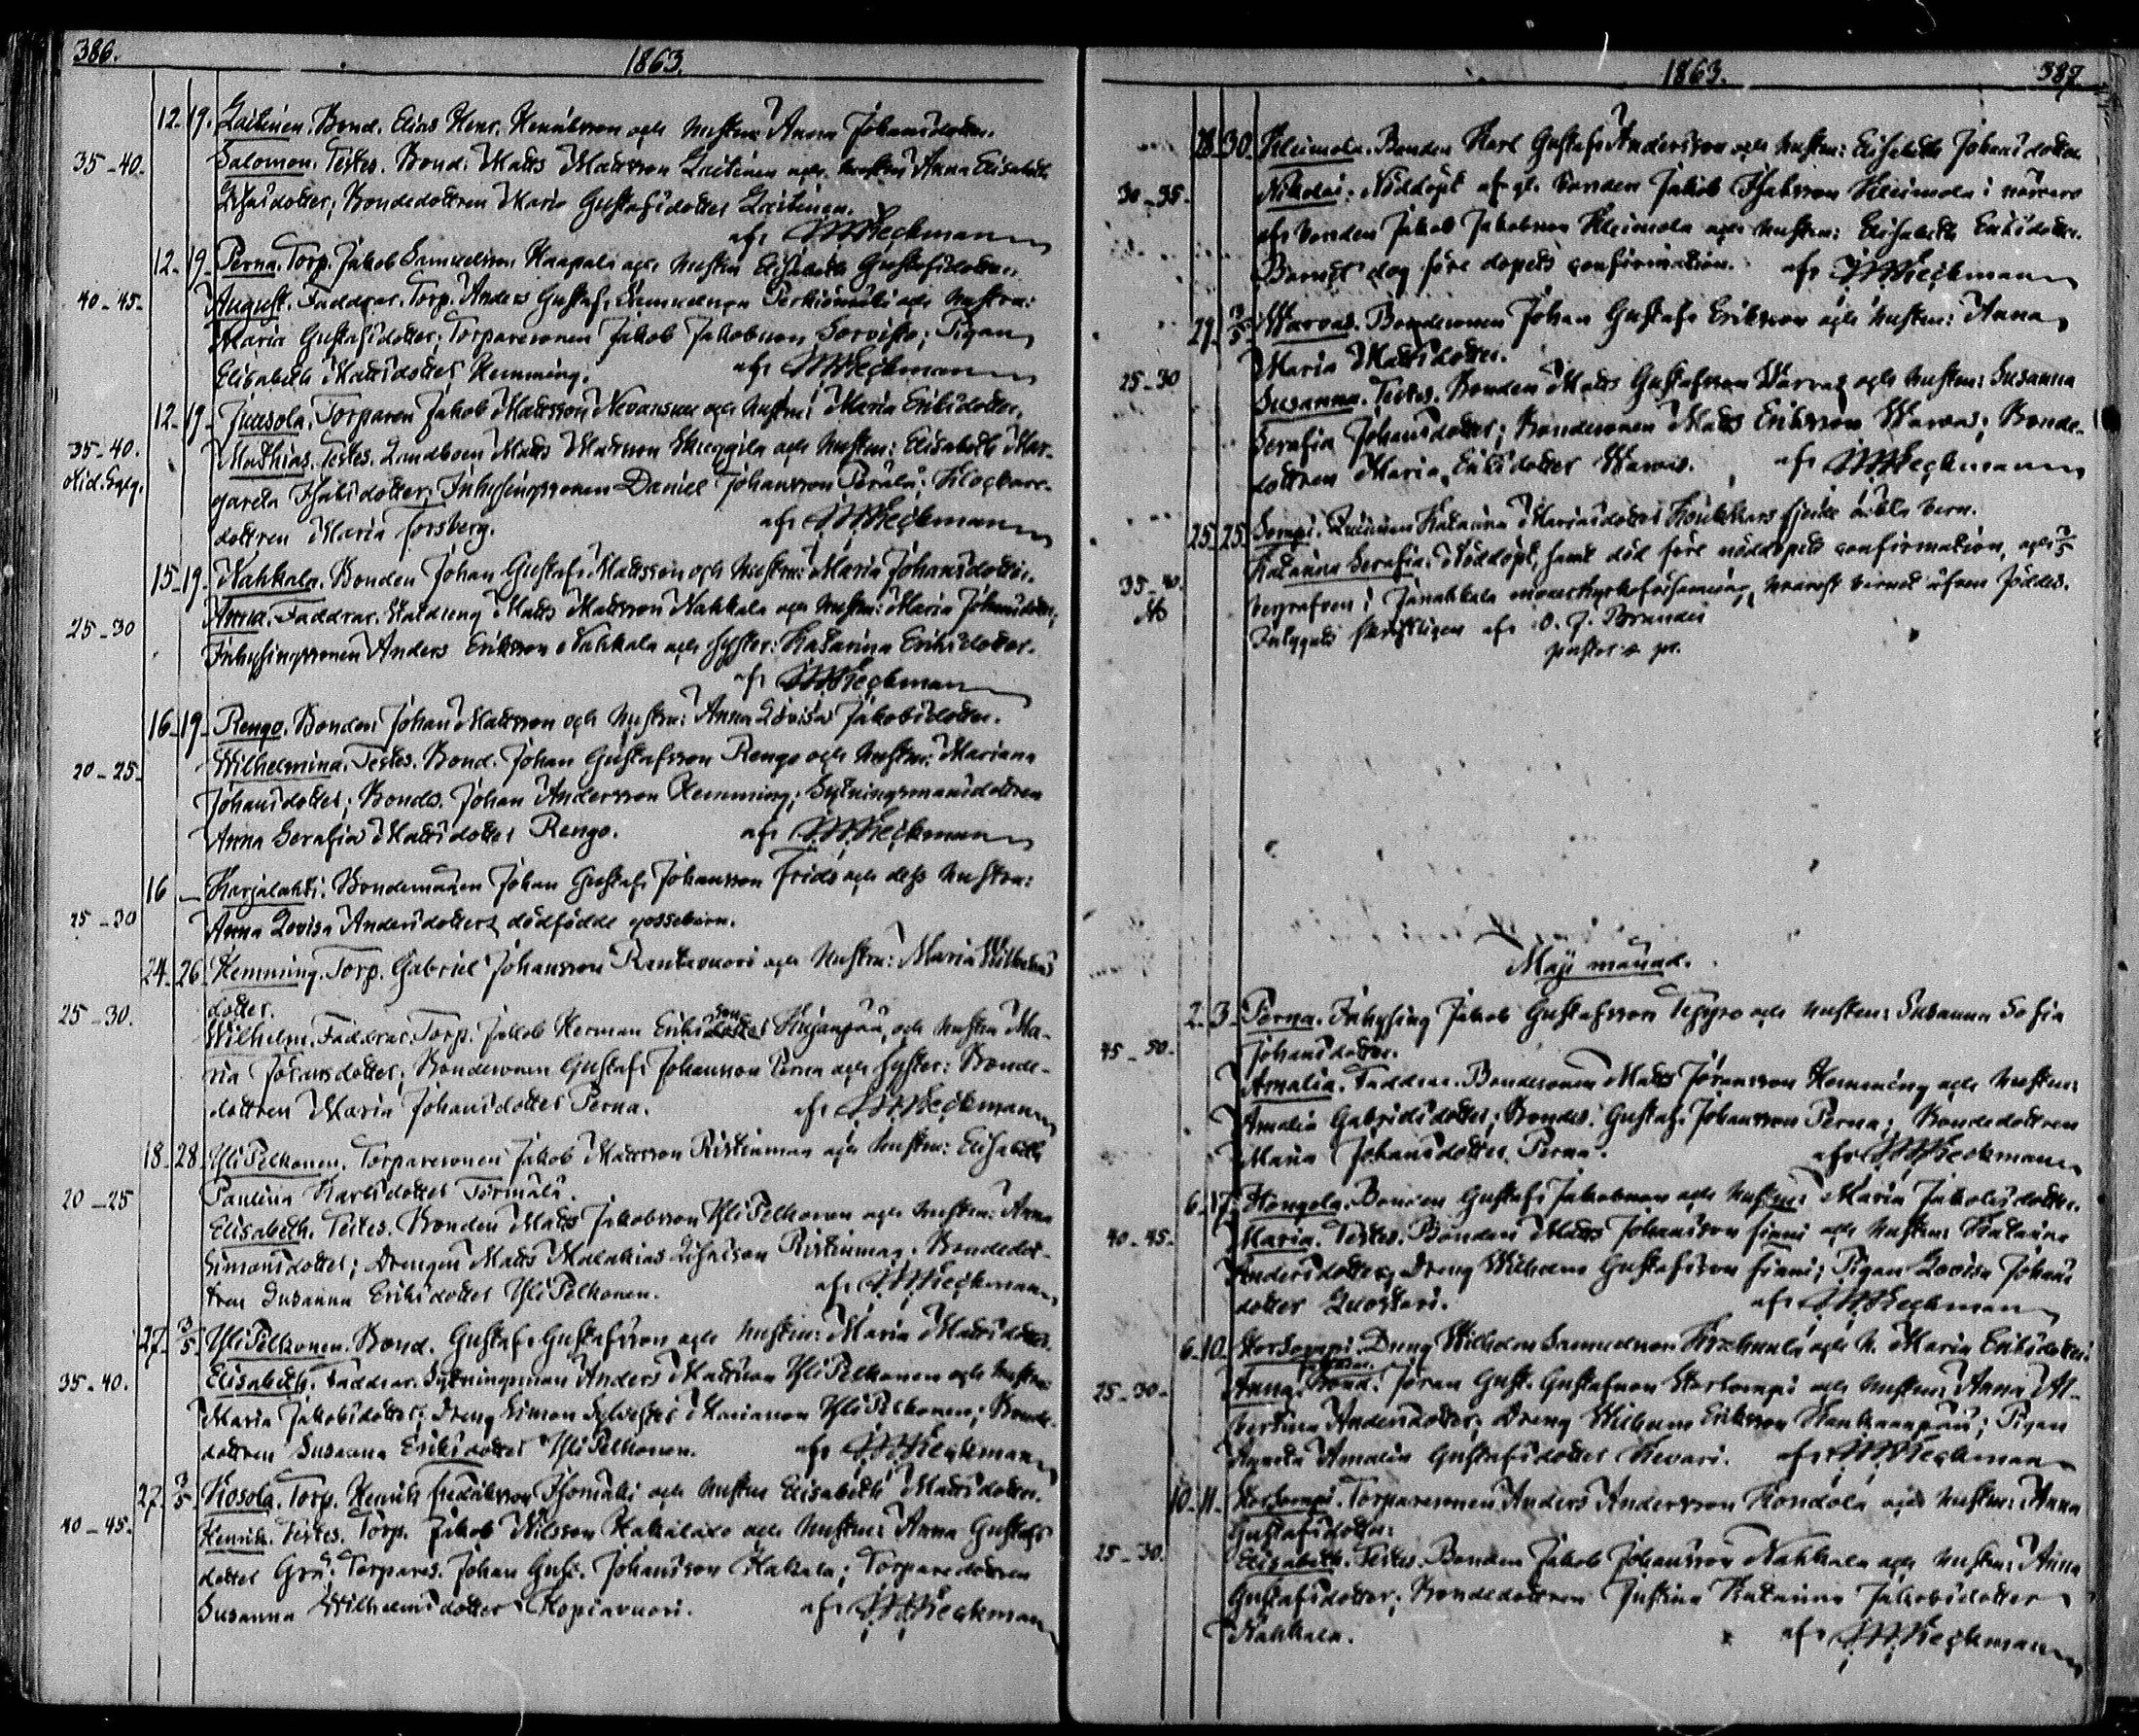 386.
1863.
12. 19. Laitinen. Bond. Elias Henr. Henriksson och hustru Anna Johansdotter.
35-40.
Salomon. Testes. Bond. Matts Mattsson Laitinen och hustru Anna Elisabeth
Bondedottren Maria Gustafsdotter Laitinen.
af
12. 19. Perna. Torp. Jakob Samuelsson Haapala och hustru Elisabeth Gustafsdotter.
40-45.
August. Faddrar. Torp. Anders Gustaf Samuelsson och hustru:
Maria Gustafsdotter; Torparesonen Jakob Jakobsson Sorvisto; Pigan
Elisabeth Mattsdotter Hemming. af
12. 19. Juusola. Torparen Jakob Mattsson och hustru: Maria Eriksdotter.
35-40.
Mathias. Testes. Landboen Matts Mattsson och hustru: Elisabeth Mar-
gareta Isaksdotter; Inhysingssonen Daniel Johansson Perälä; Klockare-
dottren Maria Forsberg. af
15. 19. Nahkala. Bonden Johan Gustaf Mattsson och hustru: Maria Johansdotter.
25-30
Anna. Faddrar. Matts Mattsson Nahkala och hustru: Maria Johansdotter;
Inhysingssonen Anders Eriksson Nahkala och syster: Katarina Eriksdotter.
af
16. 19. Rengo. Bonden Johan Mattsson och hustru: Anna Lovisa Jakobsdotter.
20-25.
Wilhelmina. Testes. Bond. Johan Gustafsson Rengo och hustru: Mariana
Johansdotter; Bonds. Johan Andersson Hemming; Sytningsmansdottren
Anna Serafia Mattsdotter Rengo. af
16 – Karjalahti. Bondemågen Johan Gustaf Johansson Frids och dess hustru:
25-30
Anna Lovisa Andersdotters dödfödde gossebarn.
24. 26. Hemming. Torp. Gabriel Johansson Rantavuori och hustru: Maria Wilhelms
dotter.
25-30.
Wilhelm. Faddrar. Torp. Jakob Herman Eriksson och hustru Ma-
ria Jöransdotter; Bondesonen Gustaf Johansson Perna och syster: Bonde-
dottren Maria Johansdotter Perna. af
18. 28. Yli Pelkonen. Torparesonen Jakob Mattsson Ristinmaa och hustru: Elisabeth
20-25
Paulina Karlsdotter Törmälä.
Elisabeth. Testes. Bonden Matts Jakobsson Yli Pelkonen och hustru: Anna
Simonsdotter; Drengen Matts Malakias Ristinmaa. Bondedot-
tren Susanna Eriksdotter Yli Pelkonen. af
27. 3/5 Yli Pelkonen. Bond. Gustaf Gustafsson och hustru: Maria Mattsdotter.
35-40.
Elisabeth. Faddrar. Sytningsman Anders Mattsson Yli Pelkonen och hustru:
Maria Jakobsdotter; Dreng Simon Sylvester Yli Pelkonen; Bonde-
dottren Susanna Eriksdotter Yli Pelkonen. af
27. 3/5 Kosola. Torp. Henrik Fredriksson Isomäki och hustru Elisabeth Mattsdotter.
40-45.
Henrik. Testes. Torp. Jakob Nilsson och hustru: Anna Gustafs
dotter Torpares. Johan Gust. Johansson Hakala; Torparedottren
Susanna Wilhelmsdotter af
1863.
387.
28. 30. Kleimola. Bonden Karl Gustaf Andersson och hustru: Elisabeth Johansdotter
30-35.
Nikolai. Nöddöpt af gl. bonden Jakob Isaksson Kleimola i närvaro
af bonden Jakob Jakobsson Kleimola och hustru: Elisabeth Eriksdotter.
Barnet dog före dopets confirmation. af
29. 3/5 Warvas. Bondesonen Johan Gustaf Eriksson och hustru: Anna
Maria Mattsdotter.
25-30
Susanna. Testes. Bonden Matts Gustafsson Warvas och hustru: Susanna
Serafia Johansdotter; Bondesonen Matts Eriksson Warvas; Bonde-
dottren Maria Eriksdotter Warvas. af
25. 25. Sompi. Katarina Mariasdotter fjerde oäkta barn.
35-40.
Katarina Serafia. Nöddöpt, samt död före nöddopets confirmation, och 3/5
begrafven i Janakkala moderkyrkoförsamling, hvarest barnet äfven föddes.
Intygats skriftligen af O. J. Brander
pastor
Maji månad.
2. 3. Perna. Inhysing Jakob Gustafsson och hustru: Susanna Sofia
Johansdotter.
45-50.
Amalia. Faddrar. Bondesonen Matts Jöransson Hemming och hustru:
Amalia Gabrielsdotter; Bondes. Gustaf Johansson Perna; Bondedottren
Maria Johansdotter Perna. af
6. 17. Hongola. Bonden Gustaf Jakobsson och hustru: Maria Jakobsdotter.
40-45.
Maria. Testes. Bonden Matts Johansson Finni och hustru: Katarina
Andersdotter; Dreng Wilhelm Gustafsson Finni; Pigan Lovisa Johans
dotter af
6. 10. Storsompi. Dreng Wilhelm Samuelsson och h. Maria Eriksdotter.
25-30.
Anna. Bond. Jöran Gust. Gustafsson Storsompi och hustru: Anna Al-
bertina Andersdotter; Dreng Wilhelm Eriksson Pigan
Amalia Gustafsdotter af
10. 11. Storsompi. Torparesonen Anders Andersson Hondola och hustru: Anna
Gustafsdotter.
25-30.
Elisabeth. Testes. Bonden Jakob Johansson Nahkala och hustru: Anna
Gustafsdotter; Bondedottren Justina Katarina Jakobsdotter
Nahkala. af